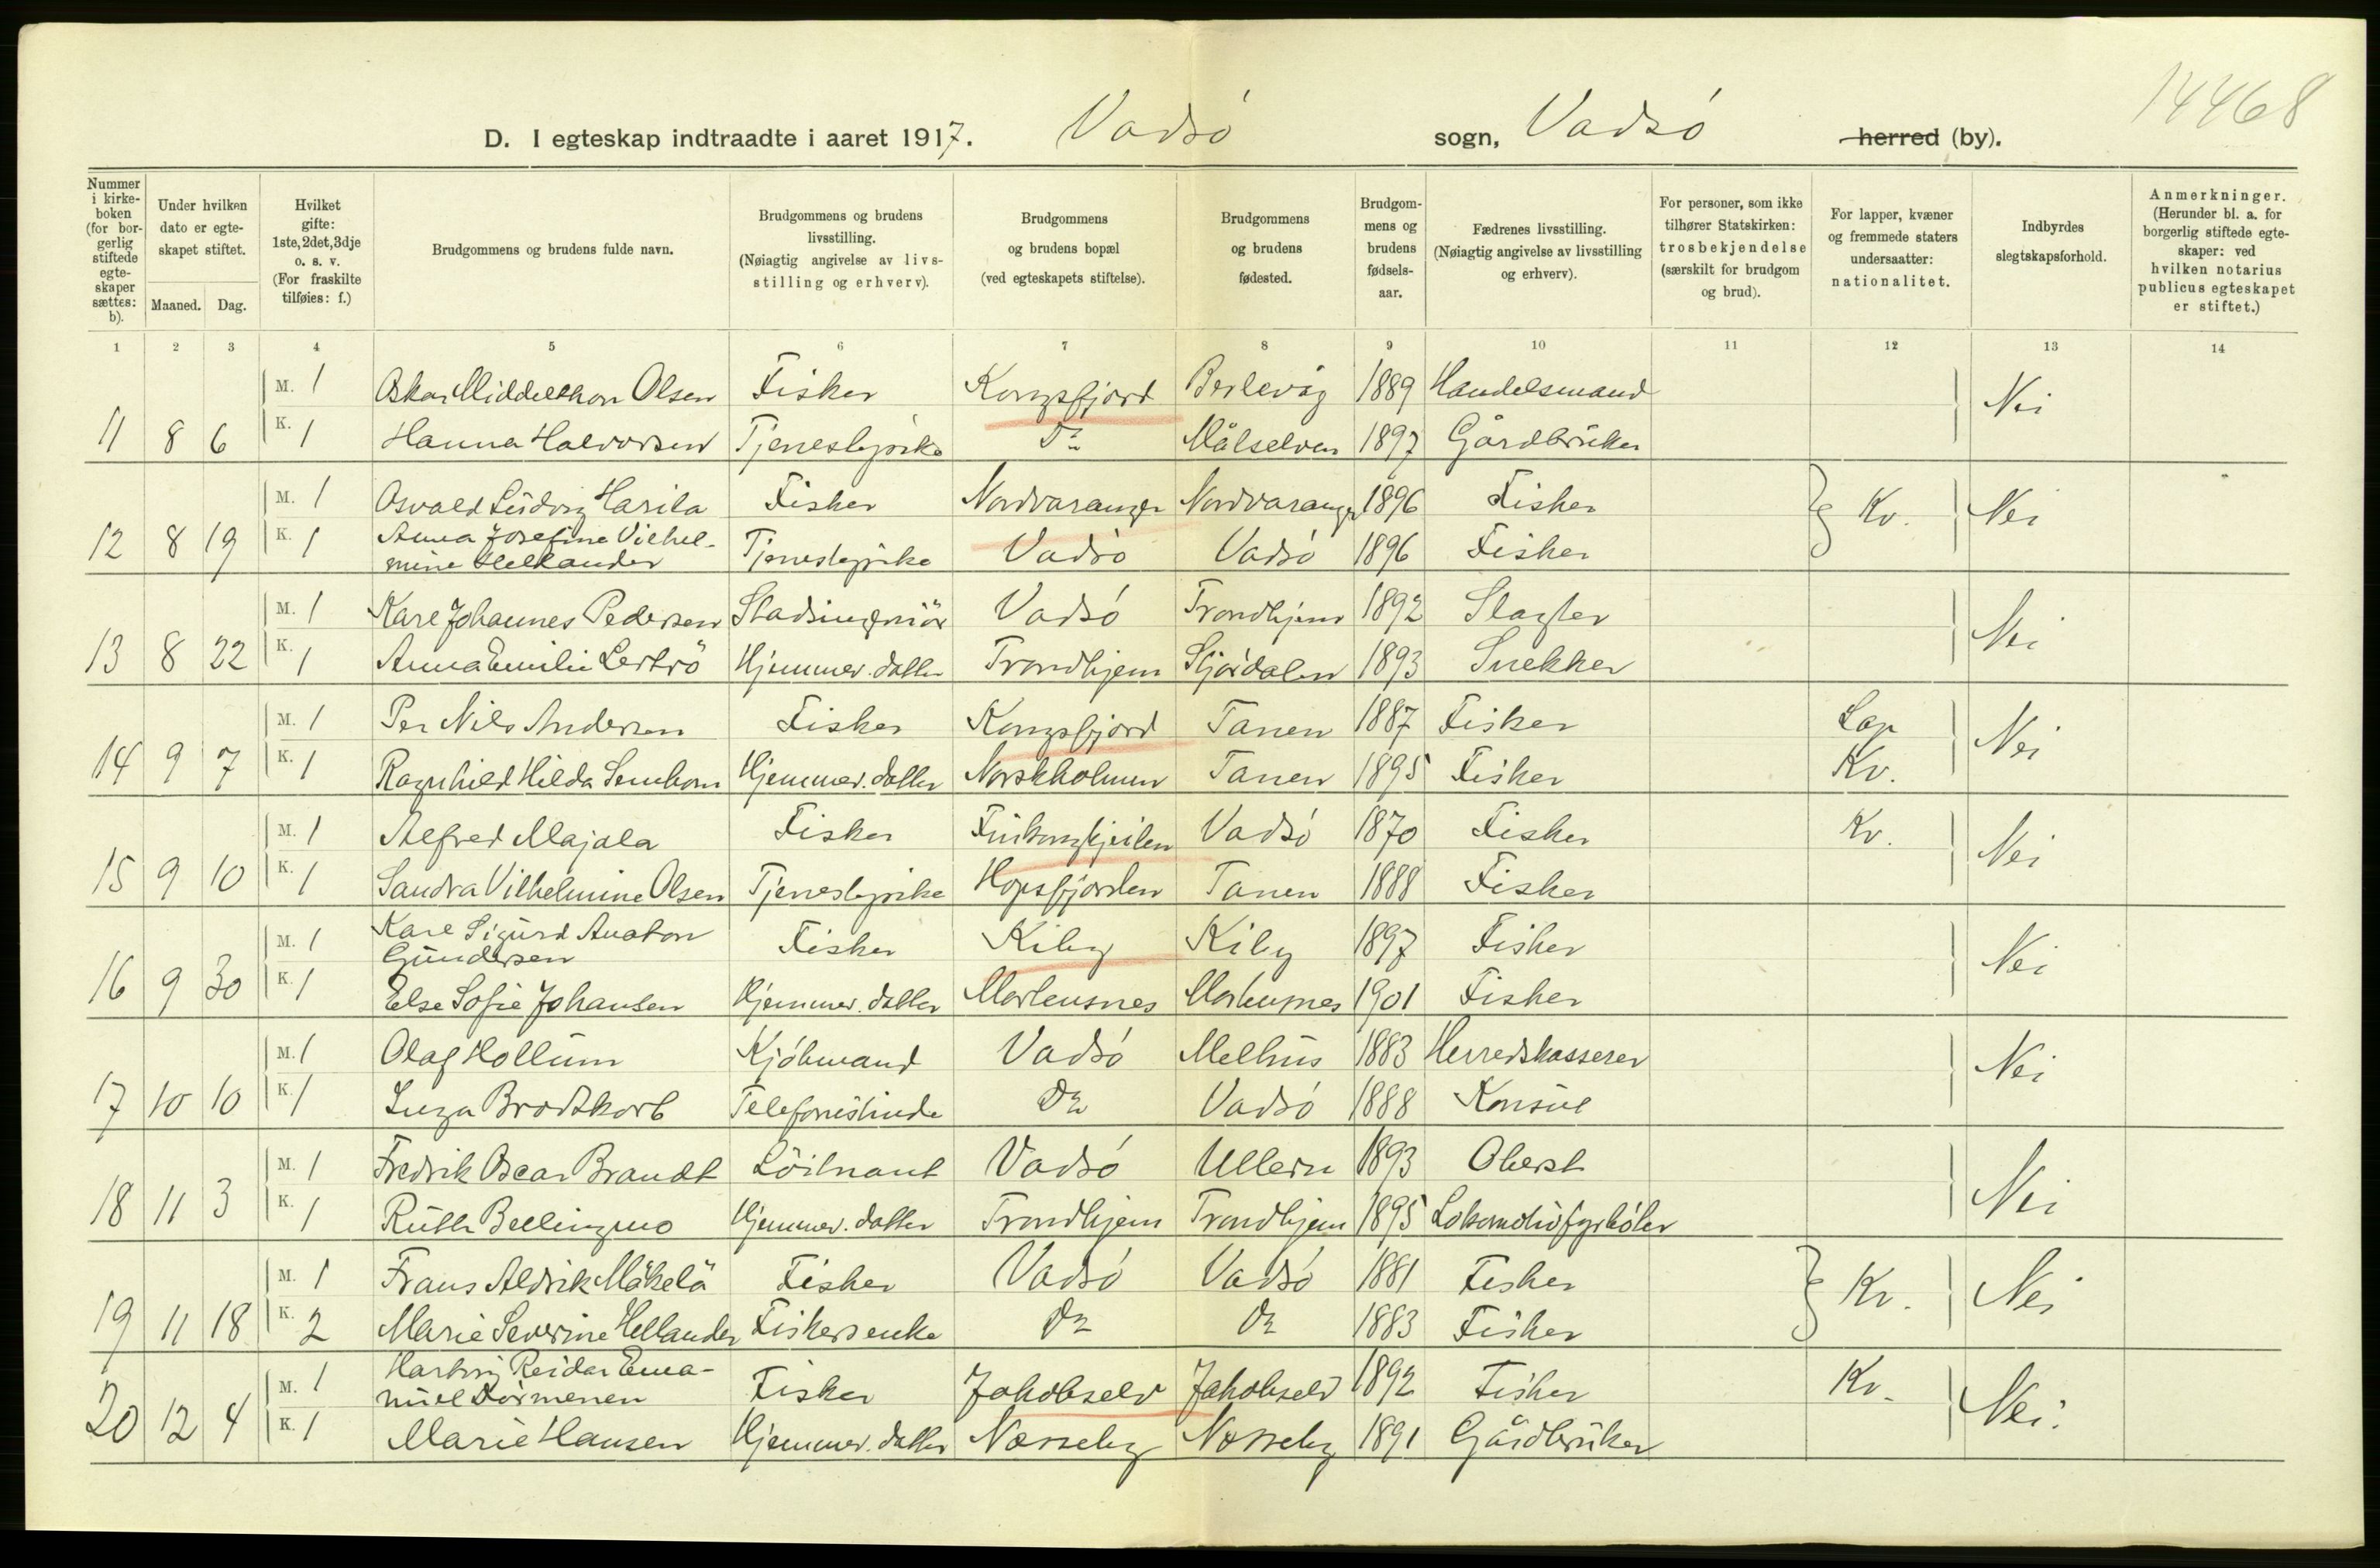 14468
D. I egteskap indtraadte i aaret 1917. Vadsö sogn, Vadsö herred (by).
Nummer i kirkeboken (for borgerlig stiftede egteskaper sættes: b).
Under hvilken dato er egteskapet stiftet.
Maaned. Dag.
Hvilket gifte: 1ste, 2det, 3dje o. s. v. (For fraskilte tilføies: f.)
Brudgommens og brudens fulde navn.
Brudgommens og brudens livsstilling. (Nøiagtig angivelse av livsstilling og erhverv).
Brudgommens og brudens bopæl (ved egteskapets stiftelse).
Brudgommens og brudens fødested.
Brudgommens og brudens fødselsaar.
Fædrenes livsstilling. (Nøiagtig angivelse av livsstilling og erhverv).
For personer, som ikke tilhører Statskirken: trosbekjendelse (særskilt for brudgom og brud).
For lapper, kvæner og fremmede staters undersaatter: nationalitet.
Indbyrdes slegtskapsforhold.
Anmerkninger. (Herunder bl. a. for borgerlig stiftede egteskaper: ved hvilken notarius publicus egteskapet er stiftet.)
1 2 3 4 5 6 7 8 9 10 11 12 13 14
M. 1 Oskar Middelthon Olsen Fisker Kongsfjord Berlevåg 1889 Handelsmand Nei
11 8 6 K. 1 Hanna Halvorsen Tjenestepike Do Målselven 1897 Gårdbruker
M. 1 Osvald Ludvig Harila Fisker Nordvaranger Nordvaranger 1896 Fisker Kv. Nei
12 8 19 K. 1 Anna Josefine Vilhelmine Hellander Tjenestepike Vadsö Vadsö 1896 Fisker
M. 1 Karl Johannes Pedersen Stadsingeniör Vadsö Trondhjem 1892 Slagter Nei
13 8 22 K. 1 Anna Emilie Lertrö Hjemmev. datter Trondhjem Stjördalen 1893 Snekker
M. 1 Per Nils Andersen Fisker Kongsfjord Tanen 1887 Fisker Lap Nei
14 9 7 K. 1 Ragnhild Hilda Hjemmev. datter Norskholmen Tanen 1895 Fisker Kv.
M. 1 Alfred Majala Fisker Vadsö 1870 Fisker Kv. Nei
15 9 10 K. 1 Sandra Vilhelmine Olsen Tjenestepike Hopsfjorden Tanen 1888 Fisker
M. 1 Karl Sigurd Anaton Gundersen Fisker Kiby Kiby 1897 Fisker Nei
16 9 30 K. 1 Else Sofie Johansen Hjemmev. datter Mortensnes Mortensnes 1901 Fisker
M. 1 Olaf Hollum Kjöbmand Vadsö Melhus 1883 Herredskasserer Nei
17 10 10 K. 1 Inga Brodtkorb Telefonistinde Do Vadsö 1888 Konsul
M. 1 Fredrik Oscar Brandt Löitnant Vadsö Ullern 1893 Oberst Nei
18 11 3 K. 1 Ruth Bellingmo Hjemmev. datter Trondhjem Trondhjem 1895 Lokomotivfyrböter
M. 1 Frans Aldrik Mäkelä Fisker Vadsö Vadsö 1881 Fisker Kv. Nei
19 11 18 K. 2 Marie Severine Hellander Fiskersenke Do Do 1883 Fisker
M. 1 Hartvig Reidar Emanuel Törmenen Fisker Jakobselv Jakobselv 1892 Fisker Kv. Nei.
20 12 4 K. 1 Marie Hansen Hjemmev. datter Nesseby Nesseby 1891 Gårdbruker